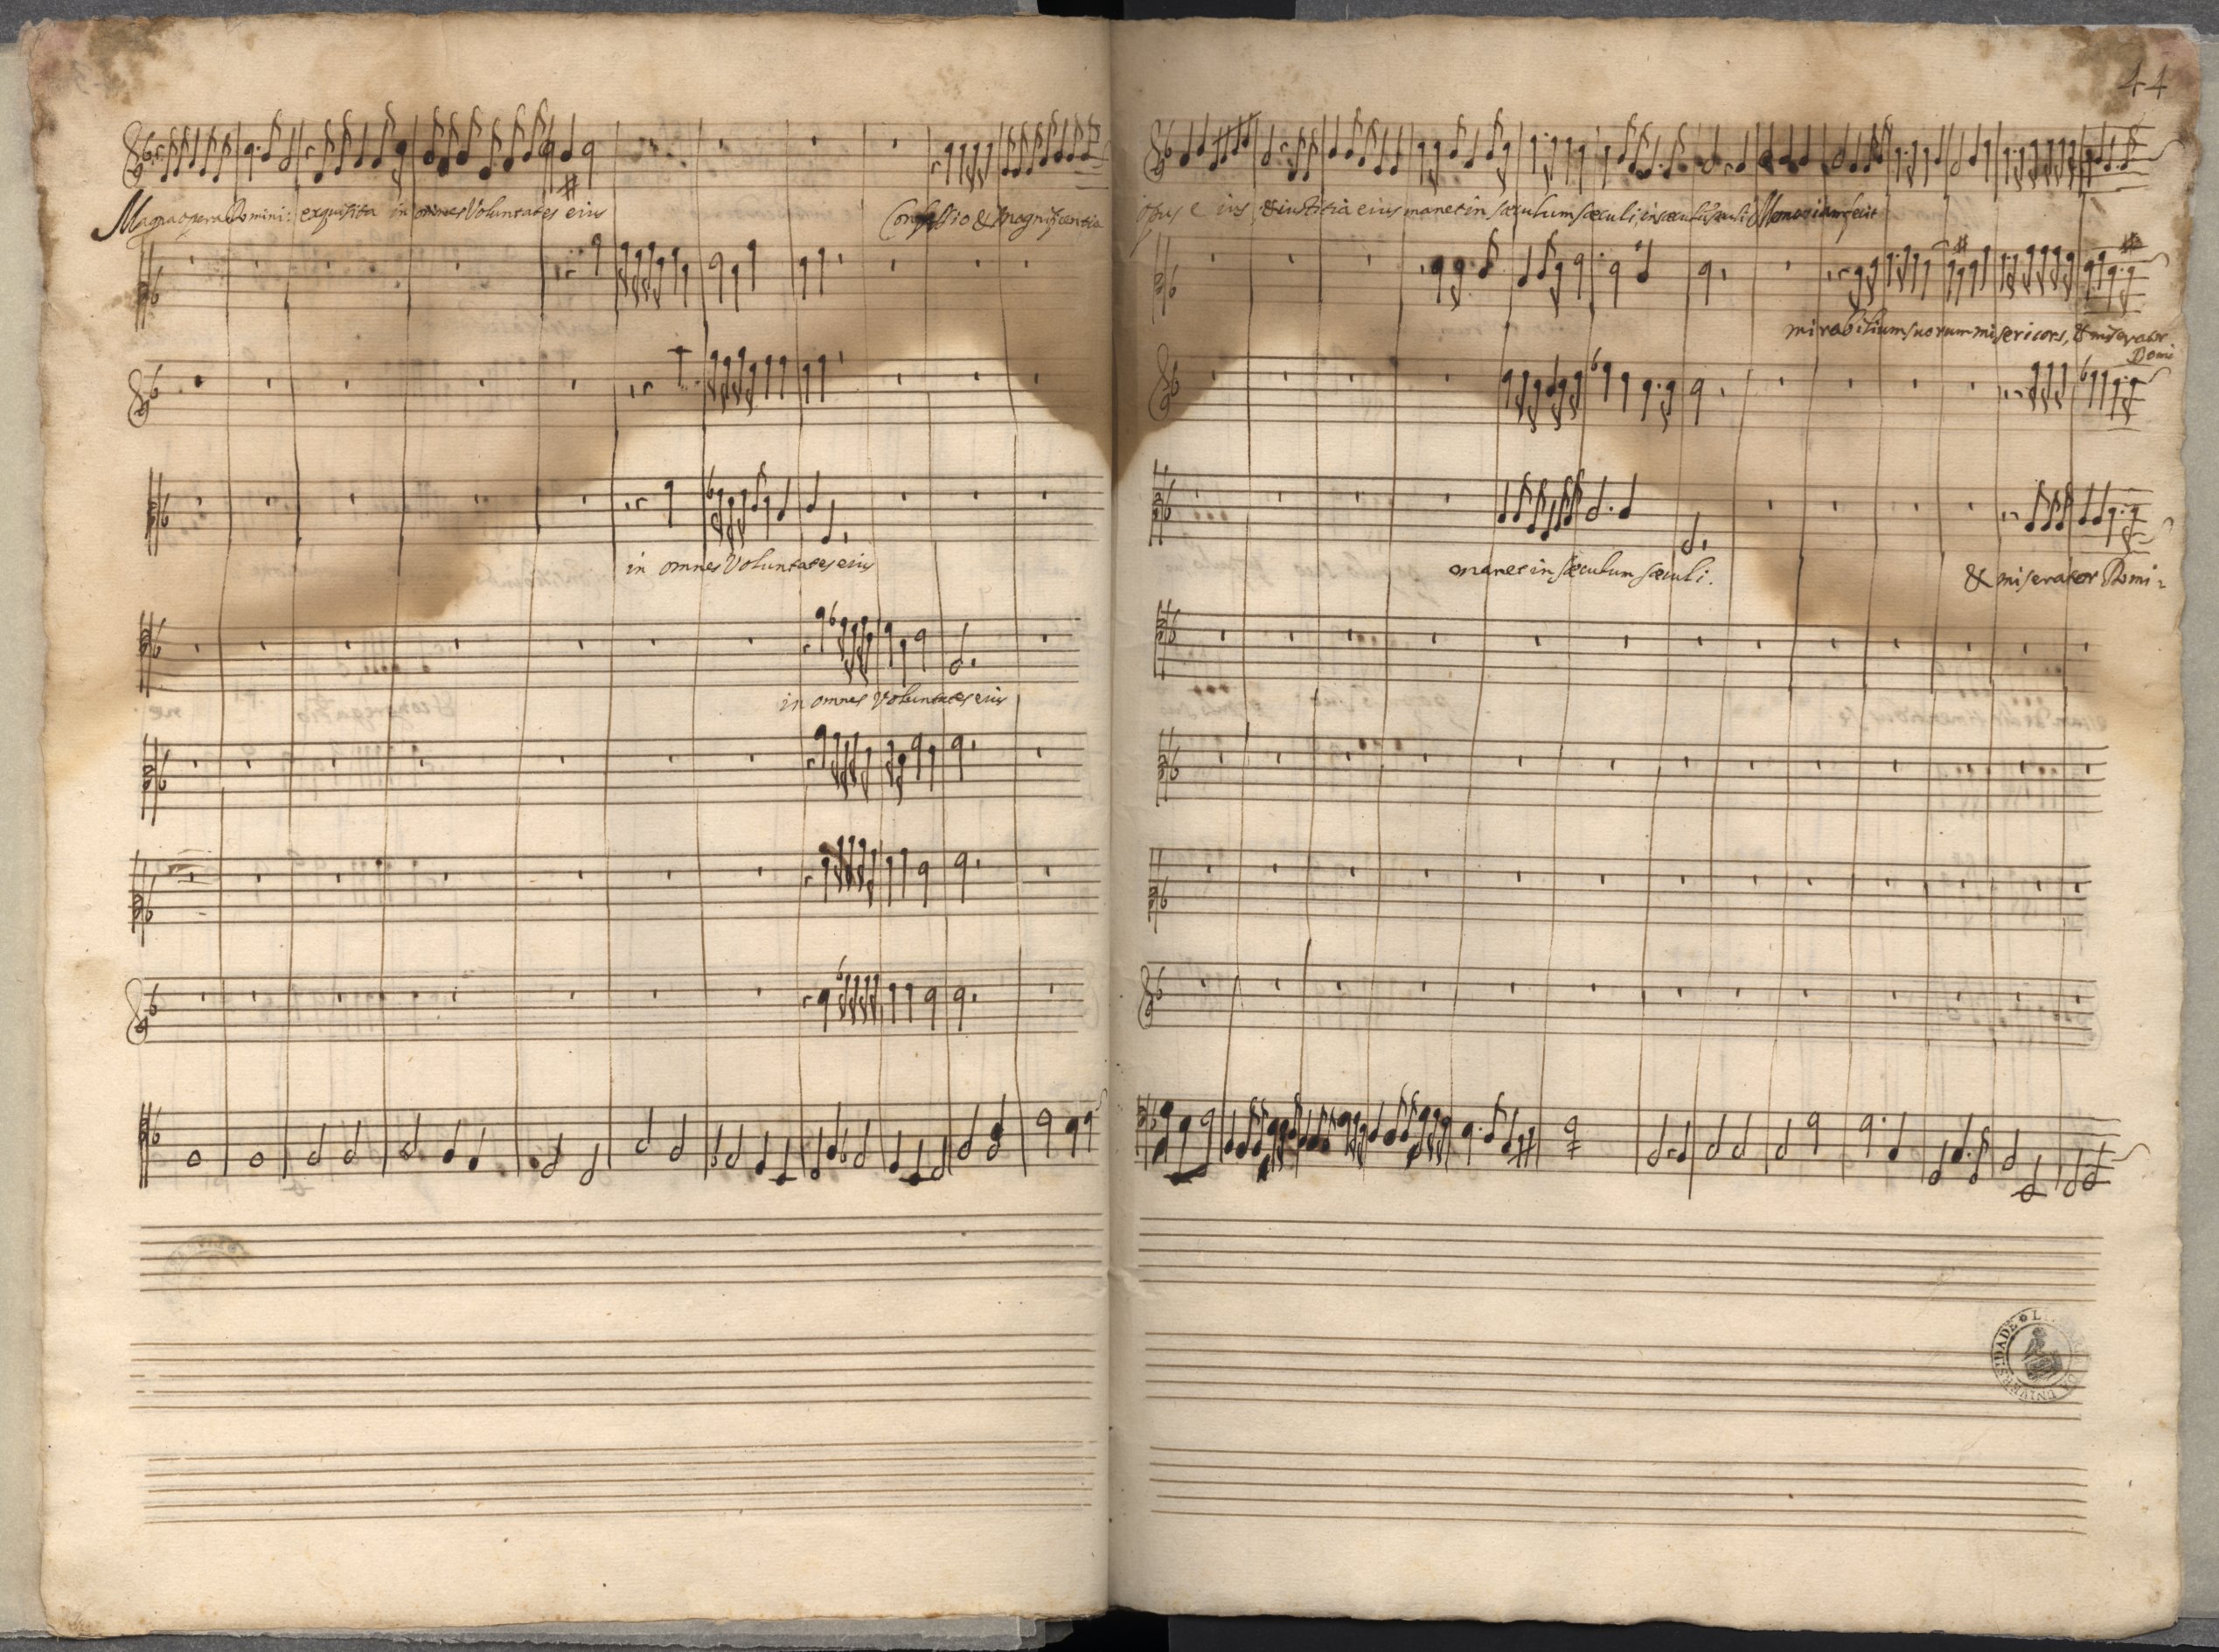 Magna opera Domini: exquisita in omnes Voluntates eius
Confessio & Magnificentia
in omnes Voluntates eius
in omnes Voluntates eius
44
opus eius, & iustitia eius manet in sæculum sæculi, in sæculũ sæculi Memoriam fecit
mirabilium suorum misericors, & miserator
Domi
manet in sæculum sæculi.
& miserator Domi=